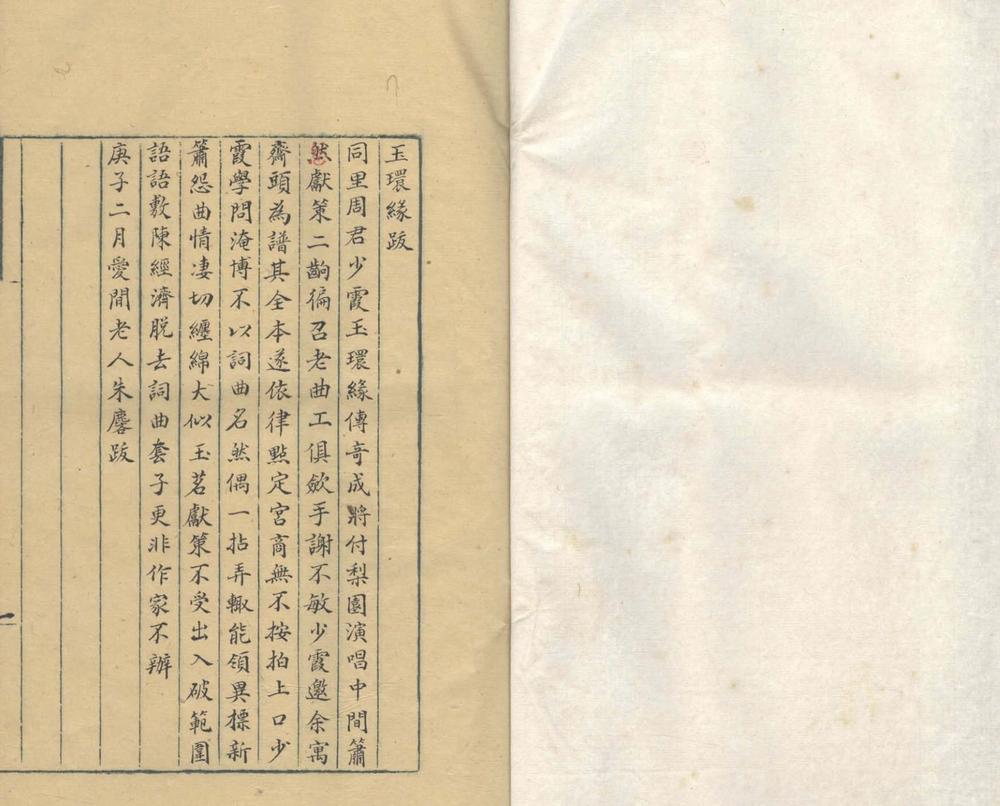 玉環緣跋
同里周君少霞玉環緣傳奇成將付梨園演唱中間簫
怨獻策二齣徧召老曲工俱歛手謝不敏少霞邀余寓
齋頭為譜其全本遂依律點定宮商無不按拍上口少
霞學問淹博不以詞曲名然偶一拈弄輙能領異標新
簫怨曲情凄切纏綿大似玉茗獻策不受出入破範圍
語語敷陳經濟脫去詞曲套子更非作家不辦
庚子二月愛閒老人朱麐跋